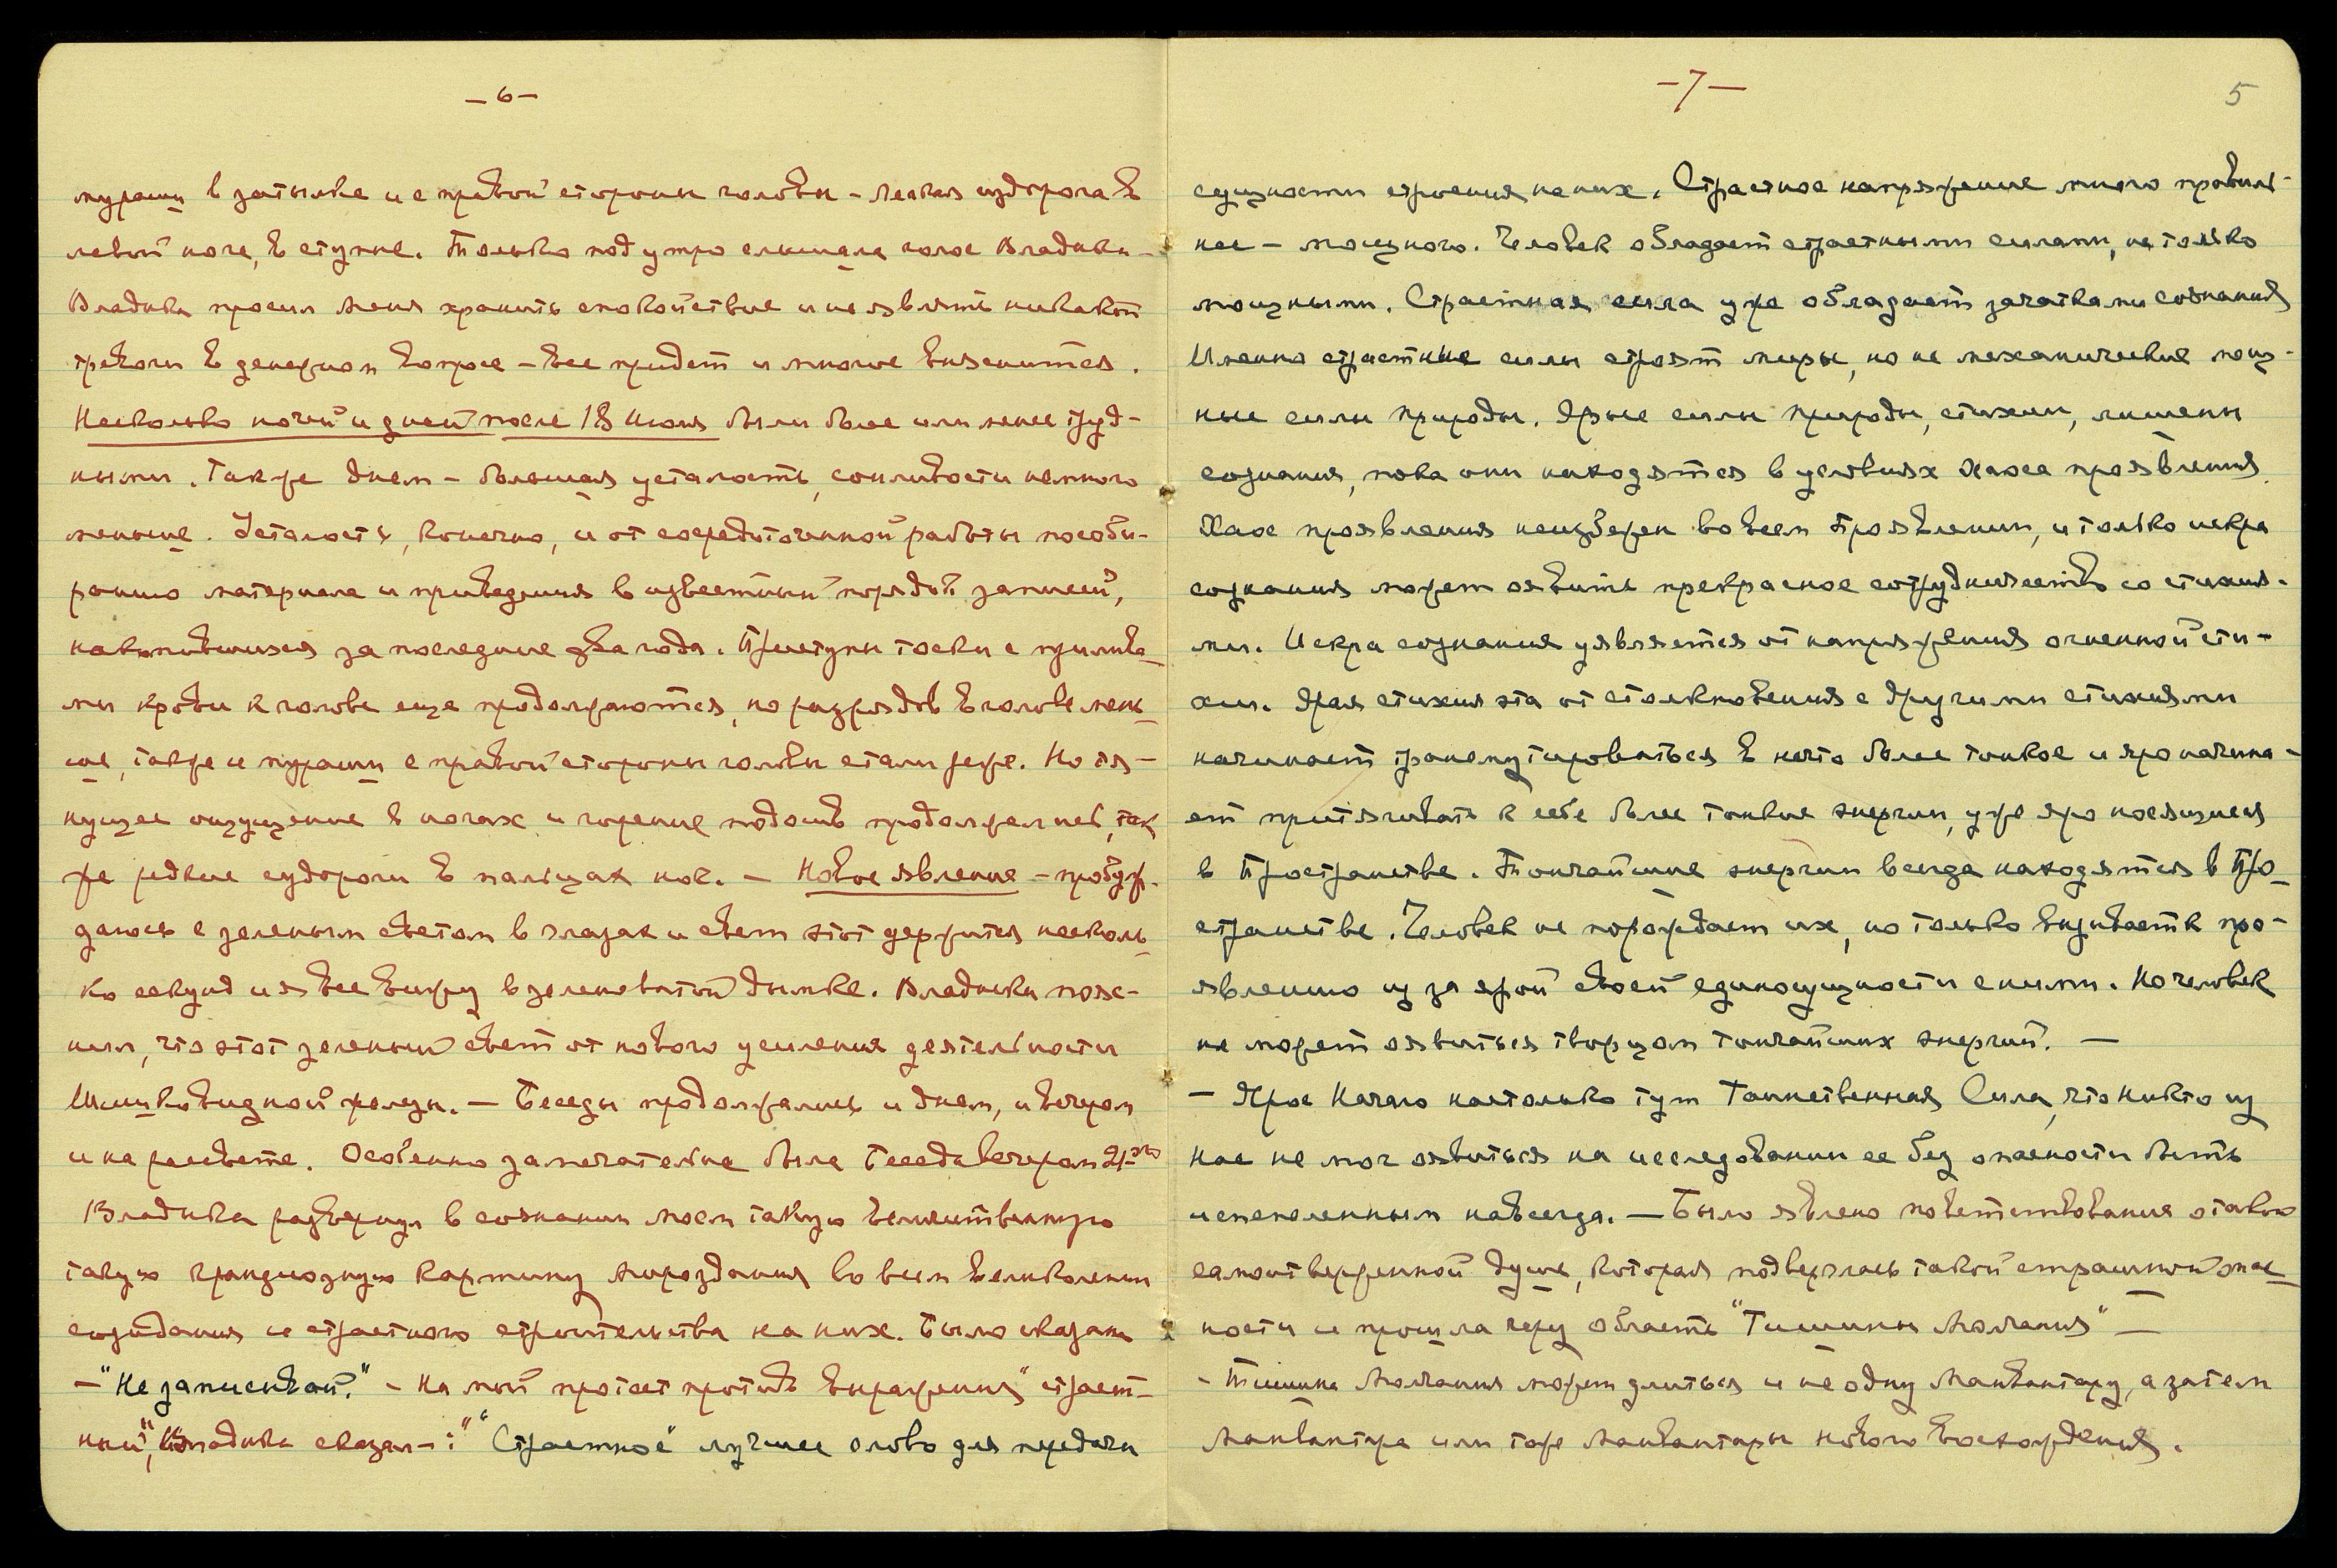 – 6 –
мураши в затылке и с правой стороны головы – легкая судорога в
левой ноге, в ступне. Только под утро слышала голос Владыки –
Владыка просил меня хранить спокойствие и не являть никакой
тревоги в денежном вопросе – все придет и многое выяснится.
Несколько ночей и дней после 18 Июня были более или менее труд-
ными. Также днем – большая усталость, сонливости немного
меньше. Усталость, конечно, и от сосредоточенной работы по соби-
ранию материала и приведения в известный порядок записей,
накопившихся за последние два года. Приступы тоски с прилива-
ми крови к голове еще продолжаются, но разрядов в голове мень-
ше, также и мураши с правой стороны головы стали реже. Но тя-
нущее ощущение в ногах и горение подошв продолжались, так
же редкие судороги в пальцах ног. – Новое явление – пробуж-
даюсь с зеленым светом в глазах и свет этот держится несколь-
ко секунд и я все вижу в зеленоватой дымке. Владыка пояс-
нил, что этот зеленый свет от нового усиления деятельности
Шишковидной железы. – Беседы продолжались и днем, и вечером
и на рассвете. Особенно замечательна была Беседа вечером 21-го
Владыка развернул в сознании моем такую величественную
такую грандиозную картину Мироздания во всем великолепии
созидания и страстного строительства на них. Было сказано
– "Не записывай." – На мой протест против выражения "страст-
ный", Владыка сказал – : " "Страстное" лучшее слово для передачи
– 7 –
5
сущности строения на них. Страстное напряжение много правиль-
нее – мощного. Человек обладает страстными силами, не только
мощными. Страстная сила уже обладает зачатками сознания
Именно страстные силы строят миры, но не механические мощ-
ные силы природы. Ярые силы природы, стихии, лишены
сознания, пока они находятся в условиях Хаоса проявления.
Хаос проявления неизбежен во всем Проявлении, и только искра
сознания может явить прекрасное сотрудничество со стихия-
ми. Искра сознания уявляется от напряжения огненной сти-
хии. Ярая стихия эта от столкновения с другими стихиями
начинает трансмутироваться в нечто более тонкое и яро начина-
ет притягивать к себе более тонкие энергии, уже яро носящиеся
в Пространстве. Тончайшие энергии всегда находятся в Про-
странстве. Человек не порождает их, но только вызывает к про-
явлению из за ярой своей единосущности с ними. Но человек
не может явиться творцом тончайших энергий. –
– Ярое Начало настолько тут Таинственная Сила, что никто из
нас не мог явиться на исследовании ее без опасности быть
испепеленным навсегда. – Было явлено повествование о такой
самоотверженной душе, которая подверглась такой страшной опас-
ности и прошла через область "Тишины Молчания" –
– Тишина Молчания может длиться и не одну Манвантару, а затем
Манвантара или тоже Манвантары нового восхождения.